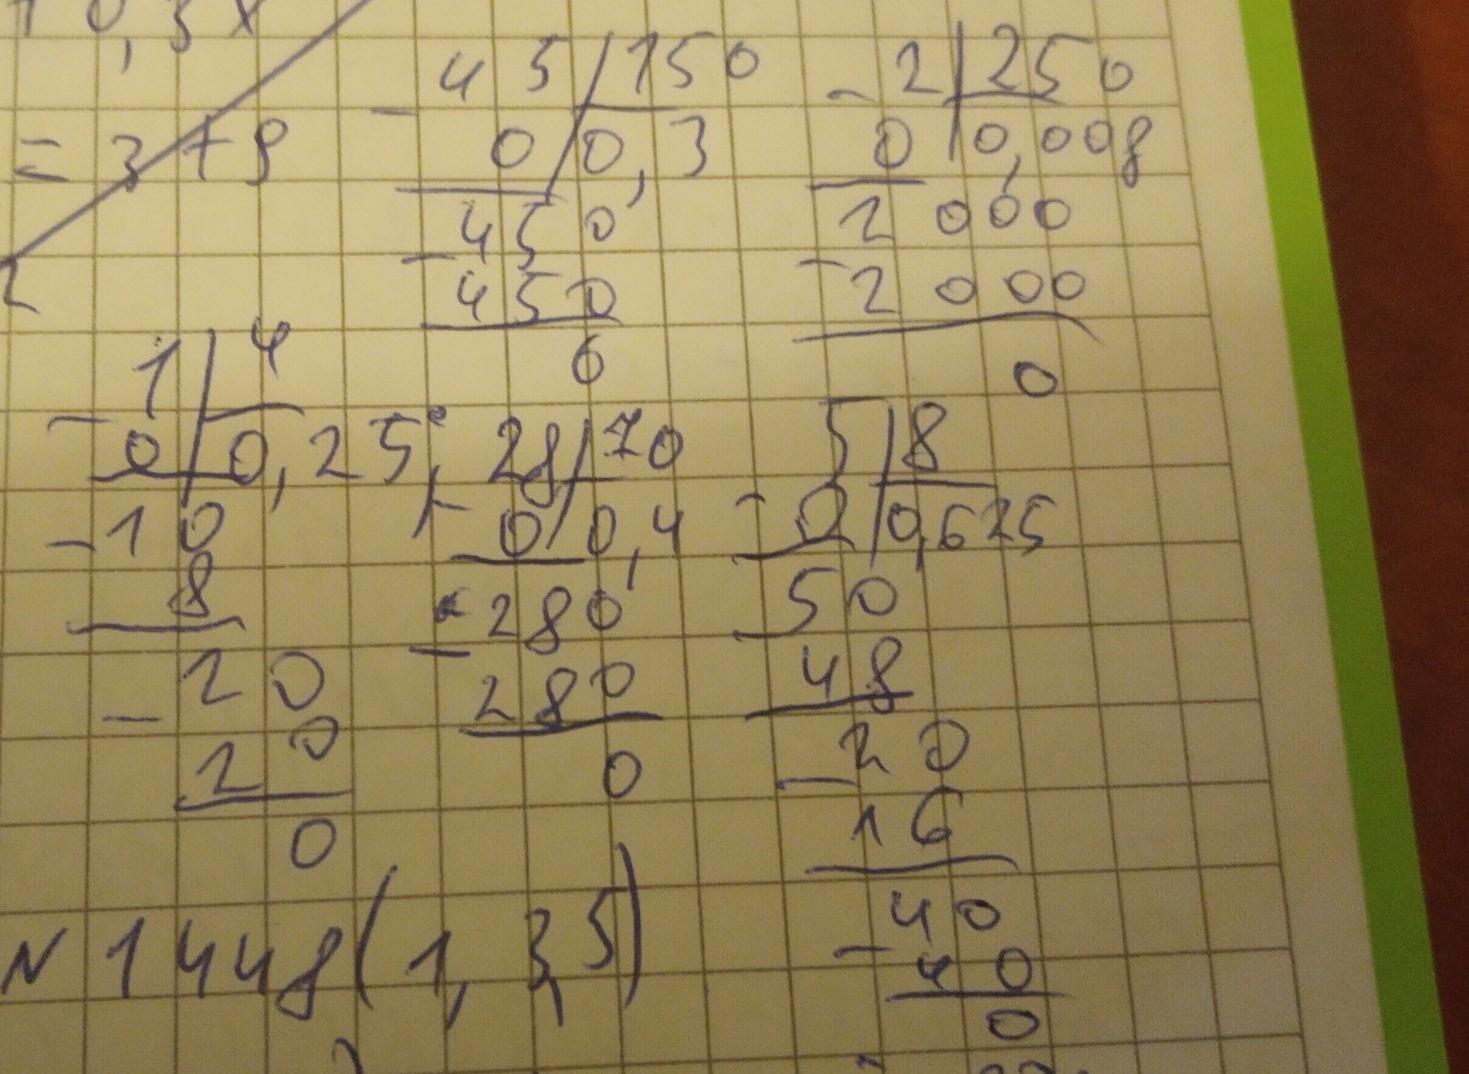 0,3x
= 3 + 9
2
- 45 / 150
0 / 0,3
- 450
450
0
- 2 | 250
0 | 0,008
- 2000
2000
0
- 1 | 4
0 | 0,25
- 10
8
- 20
20
0
- 28 / 70
0 / 0,4
- 280
280
0
- 5 | 8
0 | 0,625
- 50
48
- 20
16
- 40
40
0
N 1448 (1, 3, 5)